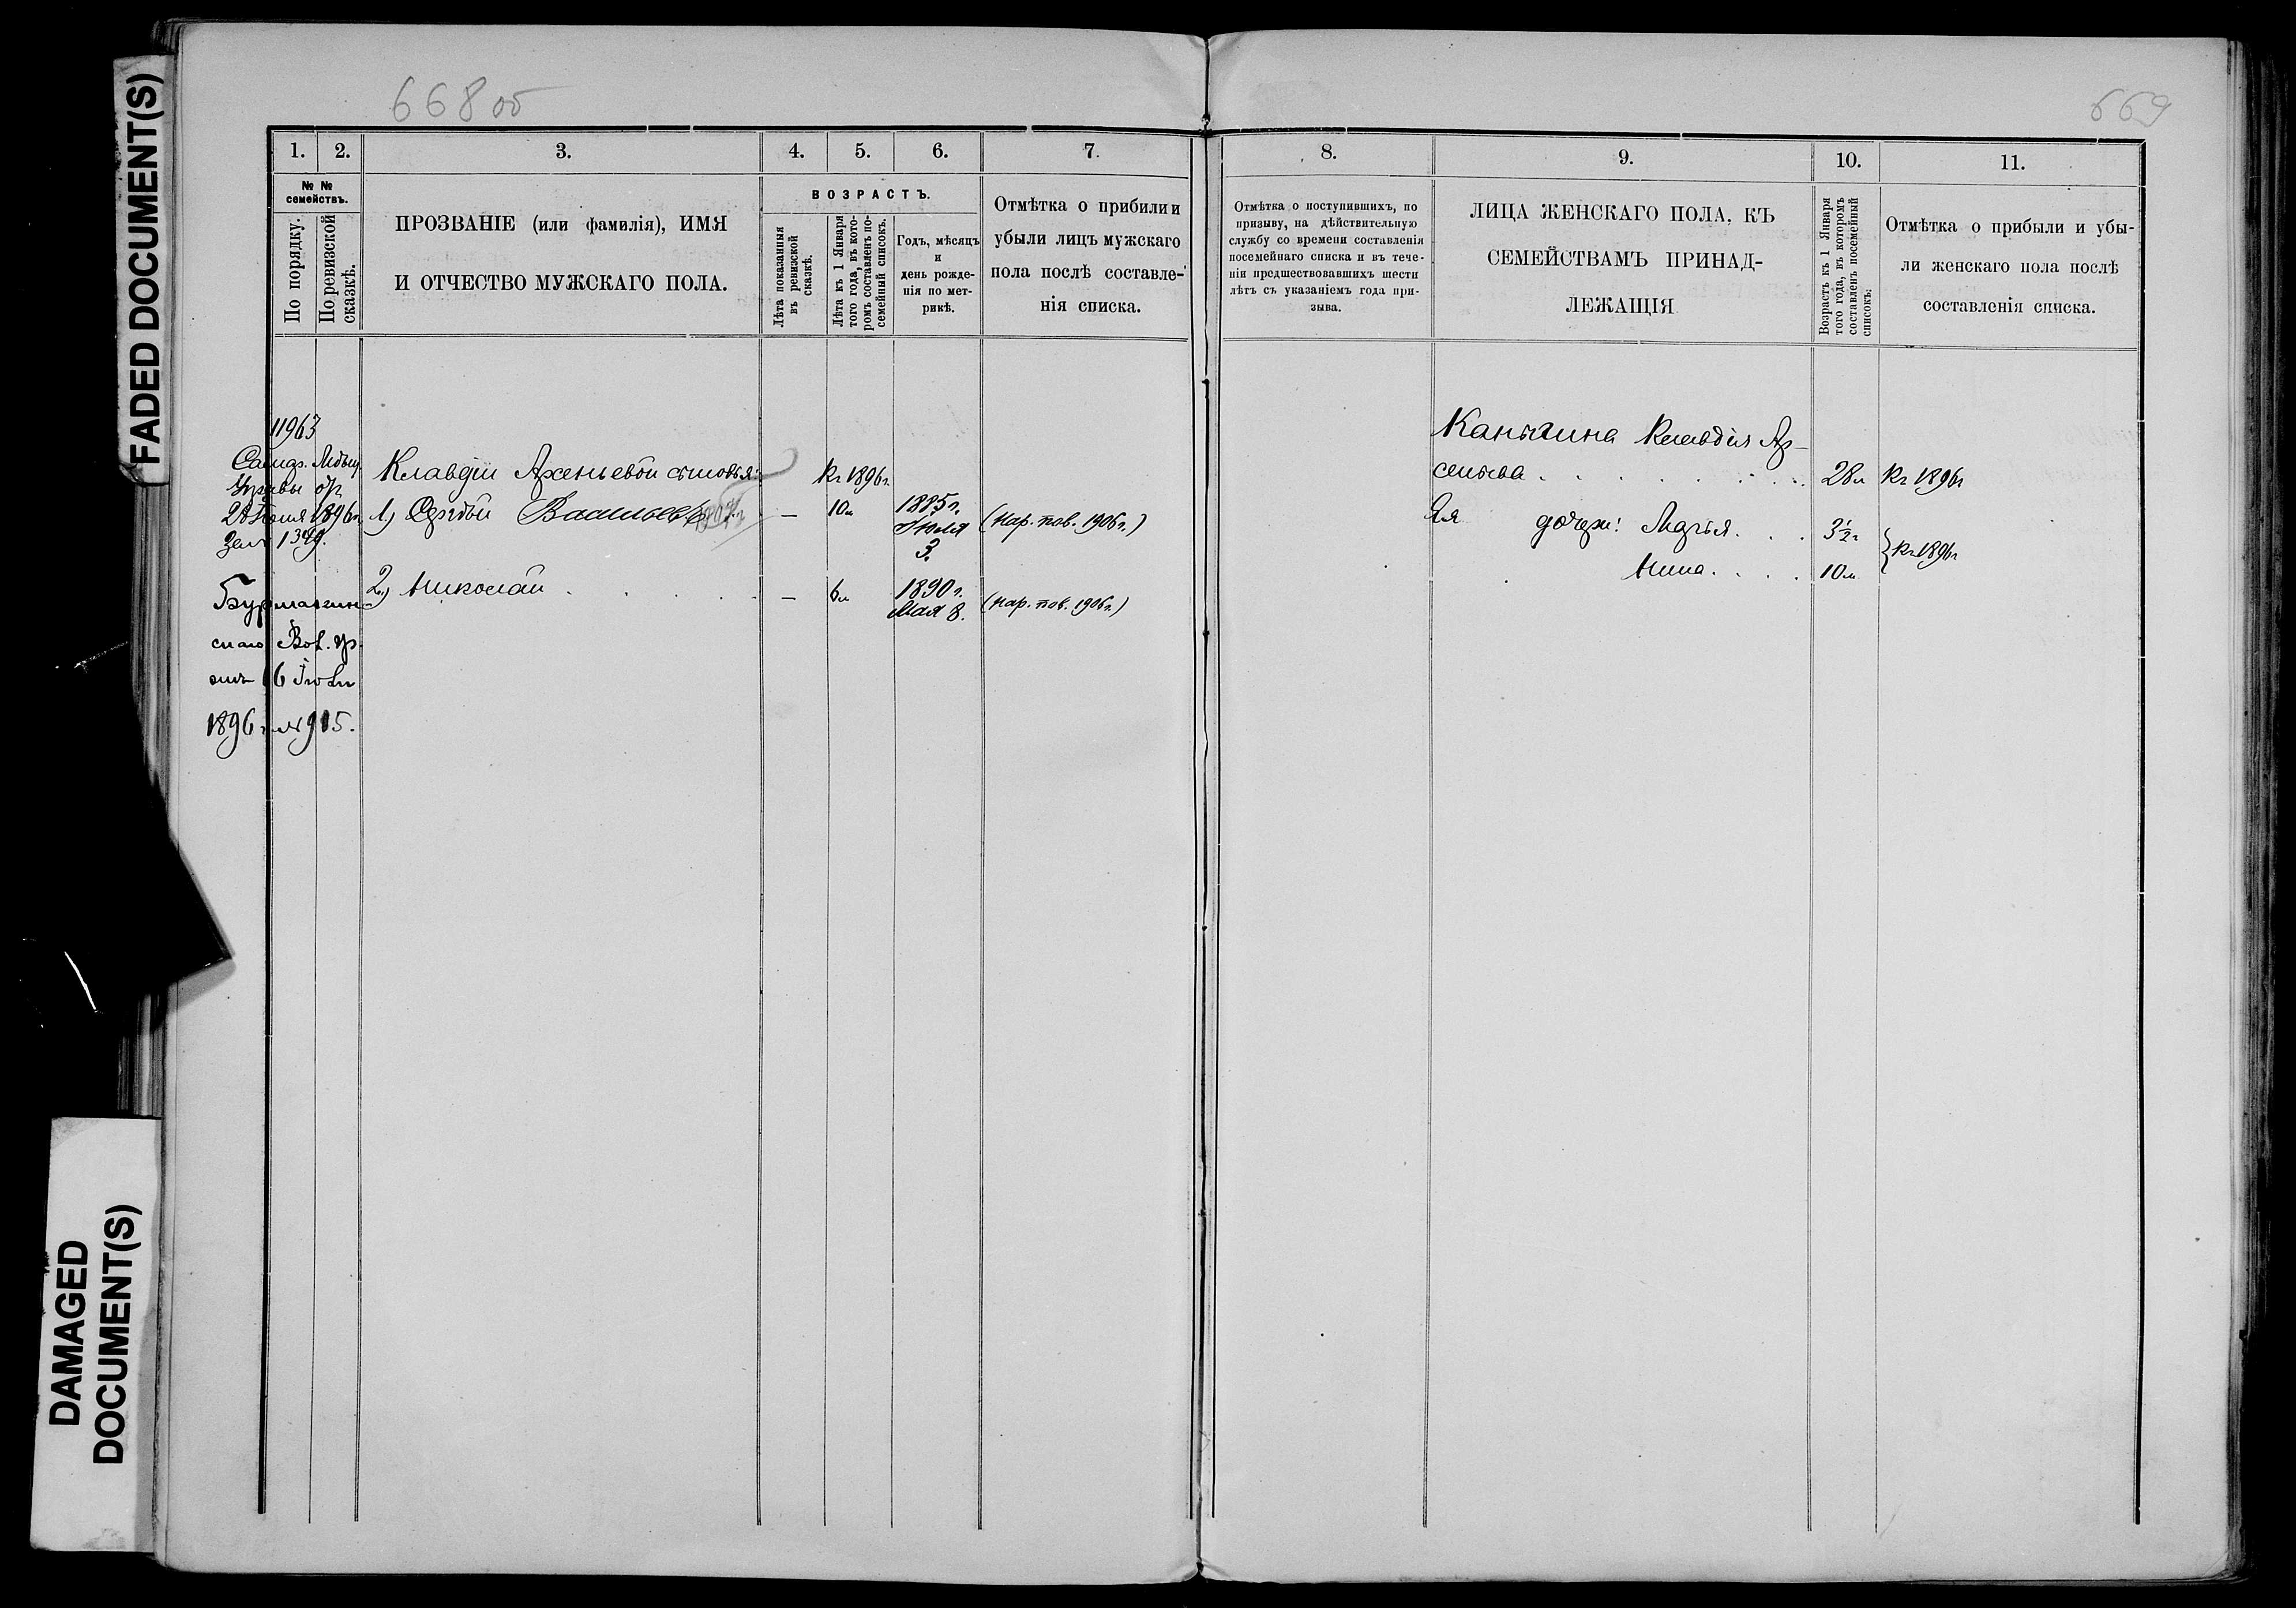 FADED DOCUMENT(S)
DAMAGED
DOCUMENT(S)
668 об
1. 2. 3. 4. 5. 6. 7.
№ №
семействъ.
По порядку.
По ревизской
сказкѣ.
ПРОЗВАНІЕ (или фамилія), ИМЯ
И ОТЧЕСТВО МУЖСКАГО ПОЛА.
ВОЗРАСТЪ.
Лѣта показанныя
въ ревизской
сказкѣ.
Лѣта къ 1 Января
того года, въ кото-
ромъ составленъ по-
семейный списокъ.
Годъ, мѣсяцъ
и
день рожде-
нія по мет-
рикѣ.
Отмѣтка о прибили и
убыли лицъ мужскаго
пола послѣ составле-
нія списка.
11963
Управы
1896 г.
1349.
Клавдіи Арсеньевой сыновья:
къ 1896 г.
1) Сергѣй Васильевъ
—
10 л
1885 г.
Іюля
3.
(нар. пов. 1906 г.)
2) Николай
—
6 л
1890 г.
Мая 8.
(нар. пов. 1906 г.)
Бурмакин-
скаго Вол. пр.
отъ 16 Іюля
1896 г. № 915.
669
8. 9. 10. 11.
Отмѣтка о поступившихъ, по
призыву, на дѣйствительную
службу со времени составленія
посемейнаго списка и въ тече-
ніи предшествовавшихъ шести
лѣтъ съ указаніемъ года при-
зыва.
ЛИЦА ЖЕНСКАГО ПОЛА, КЪ
СЕМЕЙСТВАМЪ ПРИНАД-
ЛЕЖАЩІЯ
Возрастъ къ 1 Января
того года, въ которомъ
составленъ посемейный
списокъ.
Отмѣтка о прибыли и убы-
ли женскаго пола послѣ
составленія списка.
Клавдія Ар-
сеньева 28 л къ 1896 г
Ея дочери: Марья 3 1/2 г
къ 1896 г
Нина 10 м